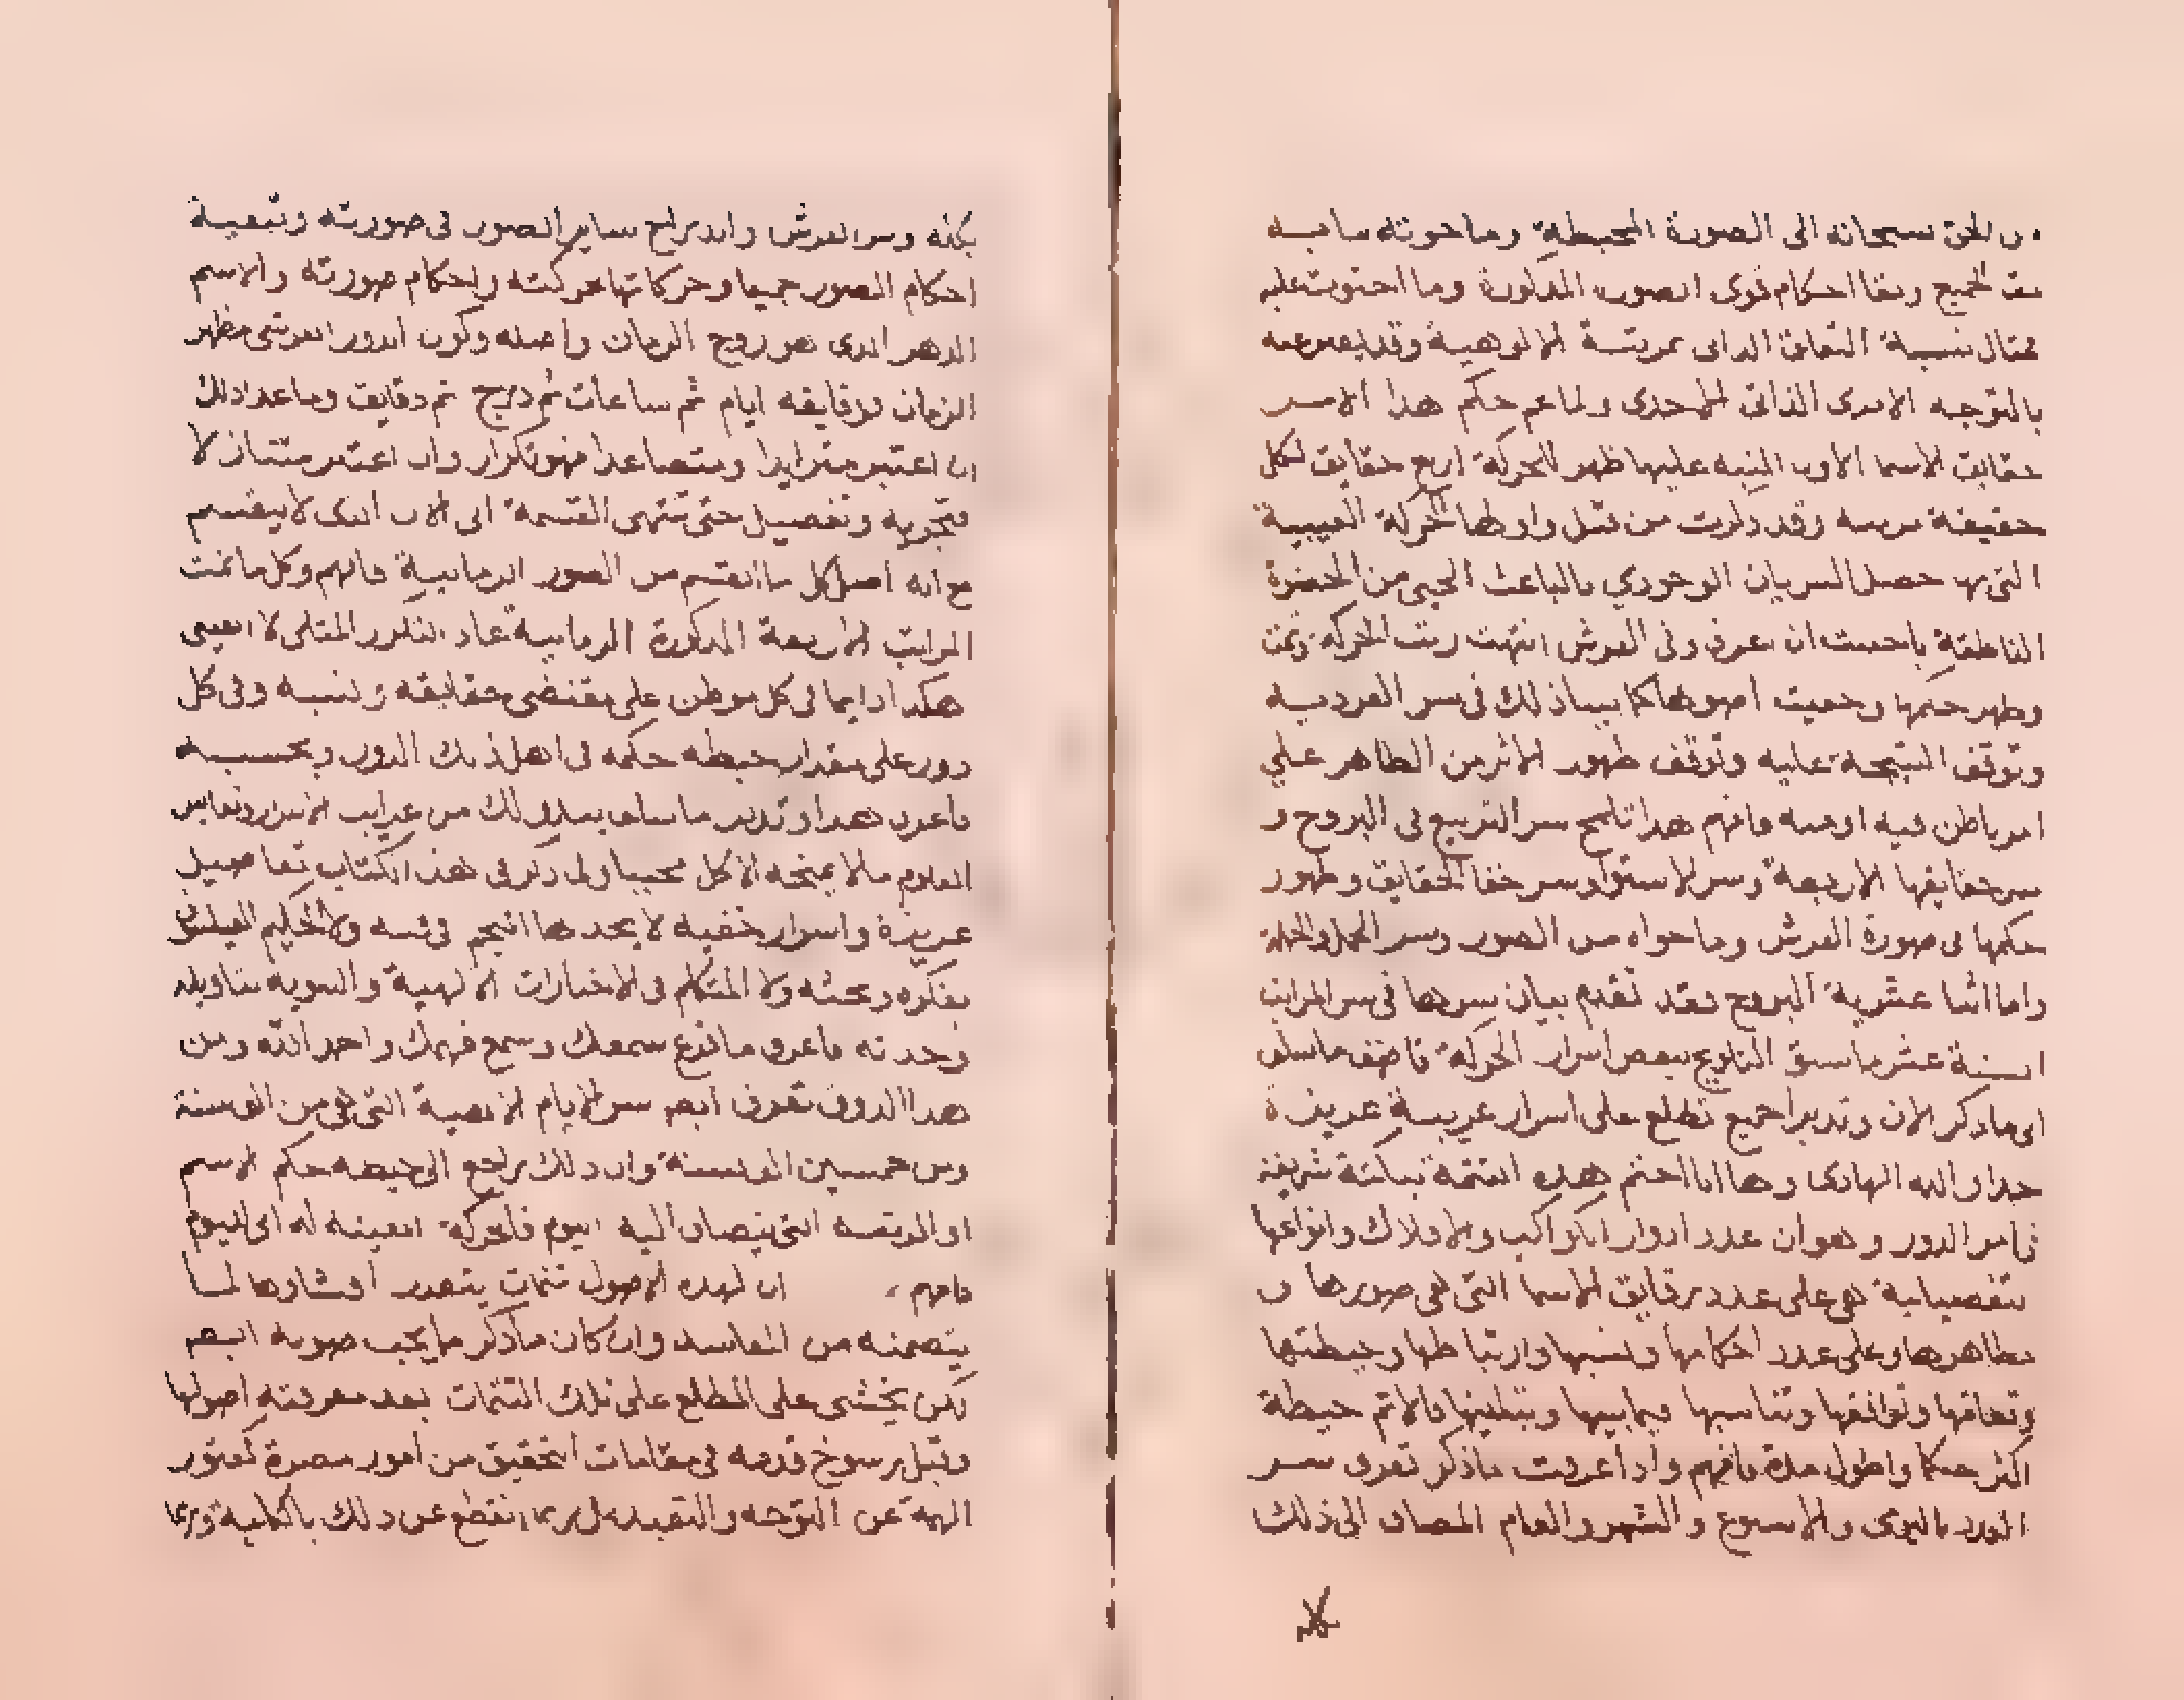 من الحق سبحانه الى الصورة المحيطة وما حوته سابـه
الجميع وبقا احكام قوى الصورة المذكورة وما احتوت عليه
مثال نسبة التعلق الذاتى بمرتبة الالوهية وقد يعبر عنه
بالتوجه الامرى الذاتى الاحدى ولما عم حكم هذا الامر
حقايق الاسما الاول المنبه عليها ظهر للحركة اربع حقايق لكل
حقيقة مرتبة وقد ذكرت من قبل واولها الحركة الغيبية
التى بها حصل السريان الوجودي بالباعث الحبى من الحضرة
الناطقة باحببت ان اعرف وفى العرش انتهت رتب الحركة وتمت
وظهر حكمها وخفيت اصولها كما بيان ذلك فى سر الفردية
وتوقف النتيجة عليه وتوقف ظهور الاثر من الظاهر على
امر باطن فيه او منه وافهم هذا تلمح سر التربيع فى البروج و
سر حقايقها الاربعة وسر الاستوا وسر خفا الحقايق وظهور
حكمها فى صورة العرش وما حواه من الصور وسر الحمل والحملة
واما اثنا عشرية البروج فقد تقدم بيان سرها فى سر المراتب
عشر ما سبق التلويح ببعض اسرار الحركة فاضف ما سلف
الى ما ذكر الان وتدبر الجميع تطلع على اسرار غريبة عزيزة
جدا والله الهادى وها انا اختم هذه التتمة بنكتة شريفة
فى امر الدور وهو ان عدد ادوار الكواكب والافلاك وانواعها
تفصيلية هى على عدد رقايق الاسما التى هى صورها و
مظاهرها وعلى عدد احكامها ونسبها وارتباطها وحيطتها
وتعلقها وتوافقها وتناسبها فيما بينها فالاتم حيطة
اكثر حكما واطول مدة فافهم واذا عرفت ما ذكر تعرف سر
الدور اليومى والاسبوع والشهر والعام المضاف الى ذلك
وسر العرش واندراج ساير الصور فى صورته وتبعية
احكام الصور جميعا وحركاتها لحركته واحكام صورته والاسم
الدهر الذى هو روح الزمان واصله وكون الدور العرشى مظهر
الزمان ورقايقه ايام ثم ساعات ثم درج ثم دقايق وما عدا ذلك
ان اعتبر متزايدا ومتصاعدا فهو تكرار وان اعتبر متنازلا
فتجزية وتفصيل حتى تنتهى القسمة الى الان الذى لا ينقسم
مع انه اصل كل ما انقسم من الصور الزمانية فافهم وكل ما تمت
المراتب الاربعة المذكورة الزمانية عاد التكرر المثلى لا العينى
هكذا دايما فى كل موطن على مقتضى حقايقه ونسبه وفى كل
دور على مقدار حيطة حكمه فى اهل ذلك الدور وبحسبه
فاعرف هذا وتدبر ما سلف يبدو لك من غرايب الاسرار ونفايس
العلوم ما لا يمنحه الا كل مجتبا ولى ذكر فى هذا الكتاب تفاصيل
عزيزة واسرار خفية لا يجدها المنجم فى فنه ولا الحكيم الفيلسوف
بفكره وبحثه ولا المتكلم فى الاخبارات الالهية والنبوية بتاويله
وحدته فاعرف ما قرع سمعك وسمع فهمك واحمد الله ومن
هذا الذوق تعرف ايضا سر الايام الالهية التى هى من الف سنة
ومن خمسين الف سنة وان ذلك راجع الى حيطة حكم الاسم
او المرتبة التى ينضاف اليه اليوم فالحركة المعينة له اى لليوم
فافهم ان لهذه الاصول تتمات يتعذر افشاوها لما
يتضمنه من المفاسد وان كان ما ذكر مما يجب صونه ايضا
لكن يخشى على المطلع على تلك التتمات بعد معرفته اصولها
وقبل رسوخ قدمه فى مقامات التحقيق من امور مضرة كفتور
الهمة عن التوجه والتقيد بل ربما انقطع عن ذلك بالكلية وربما